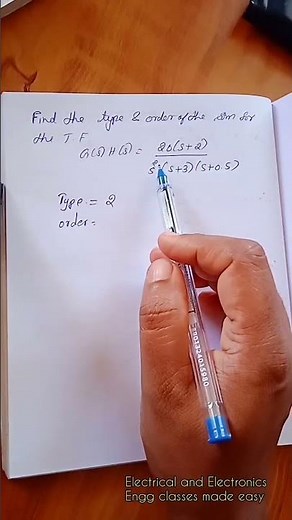 Find the type & order of the s/m for
the T.F
G(s) H(s) = 20(s+2)
s²(s+3)(s+0.5)
Type = 2
order =
Electrical and Electronics
Engg classes made easy